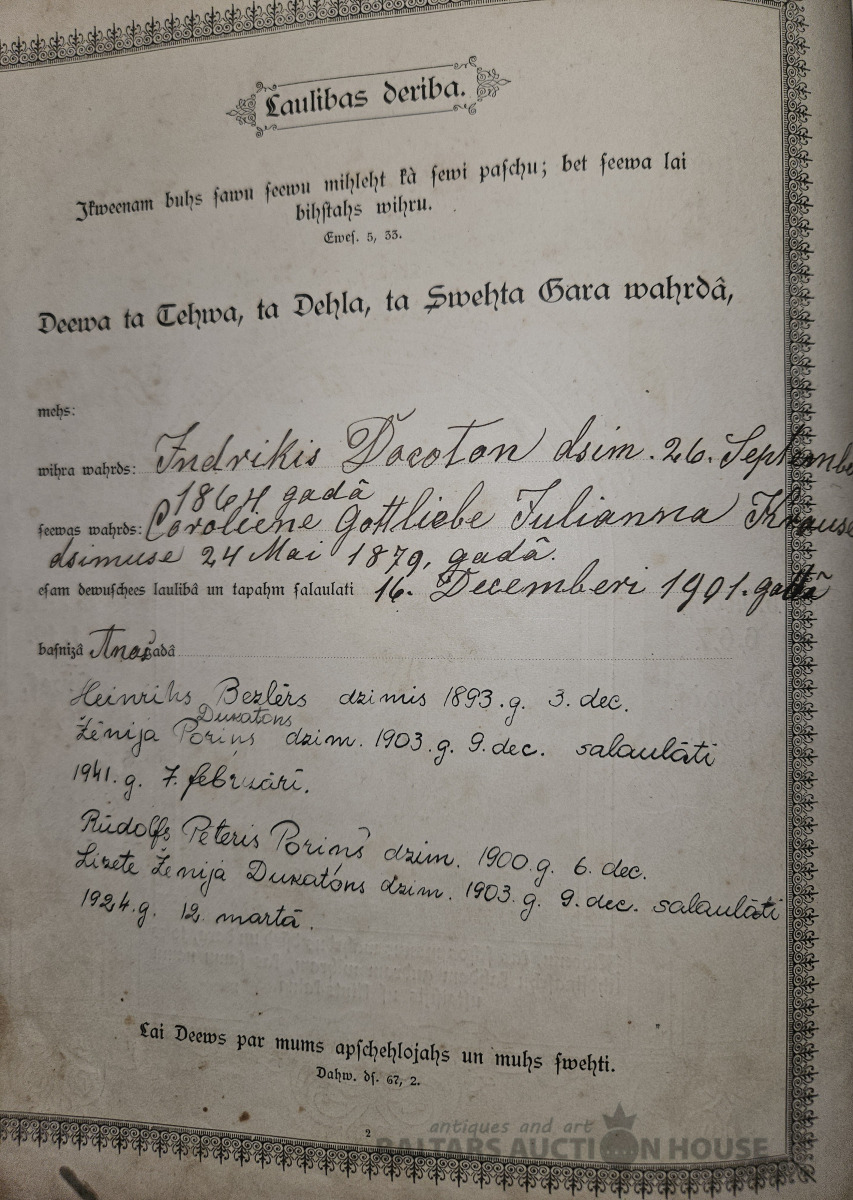 Laulibas deriba.
Ikweenam buhs sawu seewu mihleht kà sewi paschu; bet seewa lai
bihstahs wihru.
Ewes. 5, 33.
Deewa ta Tehwa, ta Dehla, ta Swehta Gara wahrdâ,
mehs:
wihra wahrds: Indrikis Docoton dsim. 26. Septembe
1864 gadâ
seewas wahrds: Caroliene Gottliebe Julianna Krause
dsimuse 24 Mai 1879. gadâ.
esam dewuschees laulibâ un tapahm salaulati 16. Decemberi 1901. gadâ
basnizâ gadâ
Heinrihs Bezlērs dzimis 1893.g. 3. dec.
Dukatons
Ženija Poriņš dzim. 1903.g. 9.dec. salaulāti
1941.g. 7. februārī.
Rūdolfs Pēteris Poriņš dzim. 1900.g. 6. dec.
Lizete Ženija Dukatóns dzim. 1903.g. 9.dec. salaulāti
1924.g. 12. martā.
Lai Deews par mums apschehlojahs un muhs swehti.
Dahw. ds. 67, 2.
2
antiques and art
BALTARS AUCTION HOUSE